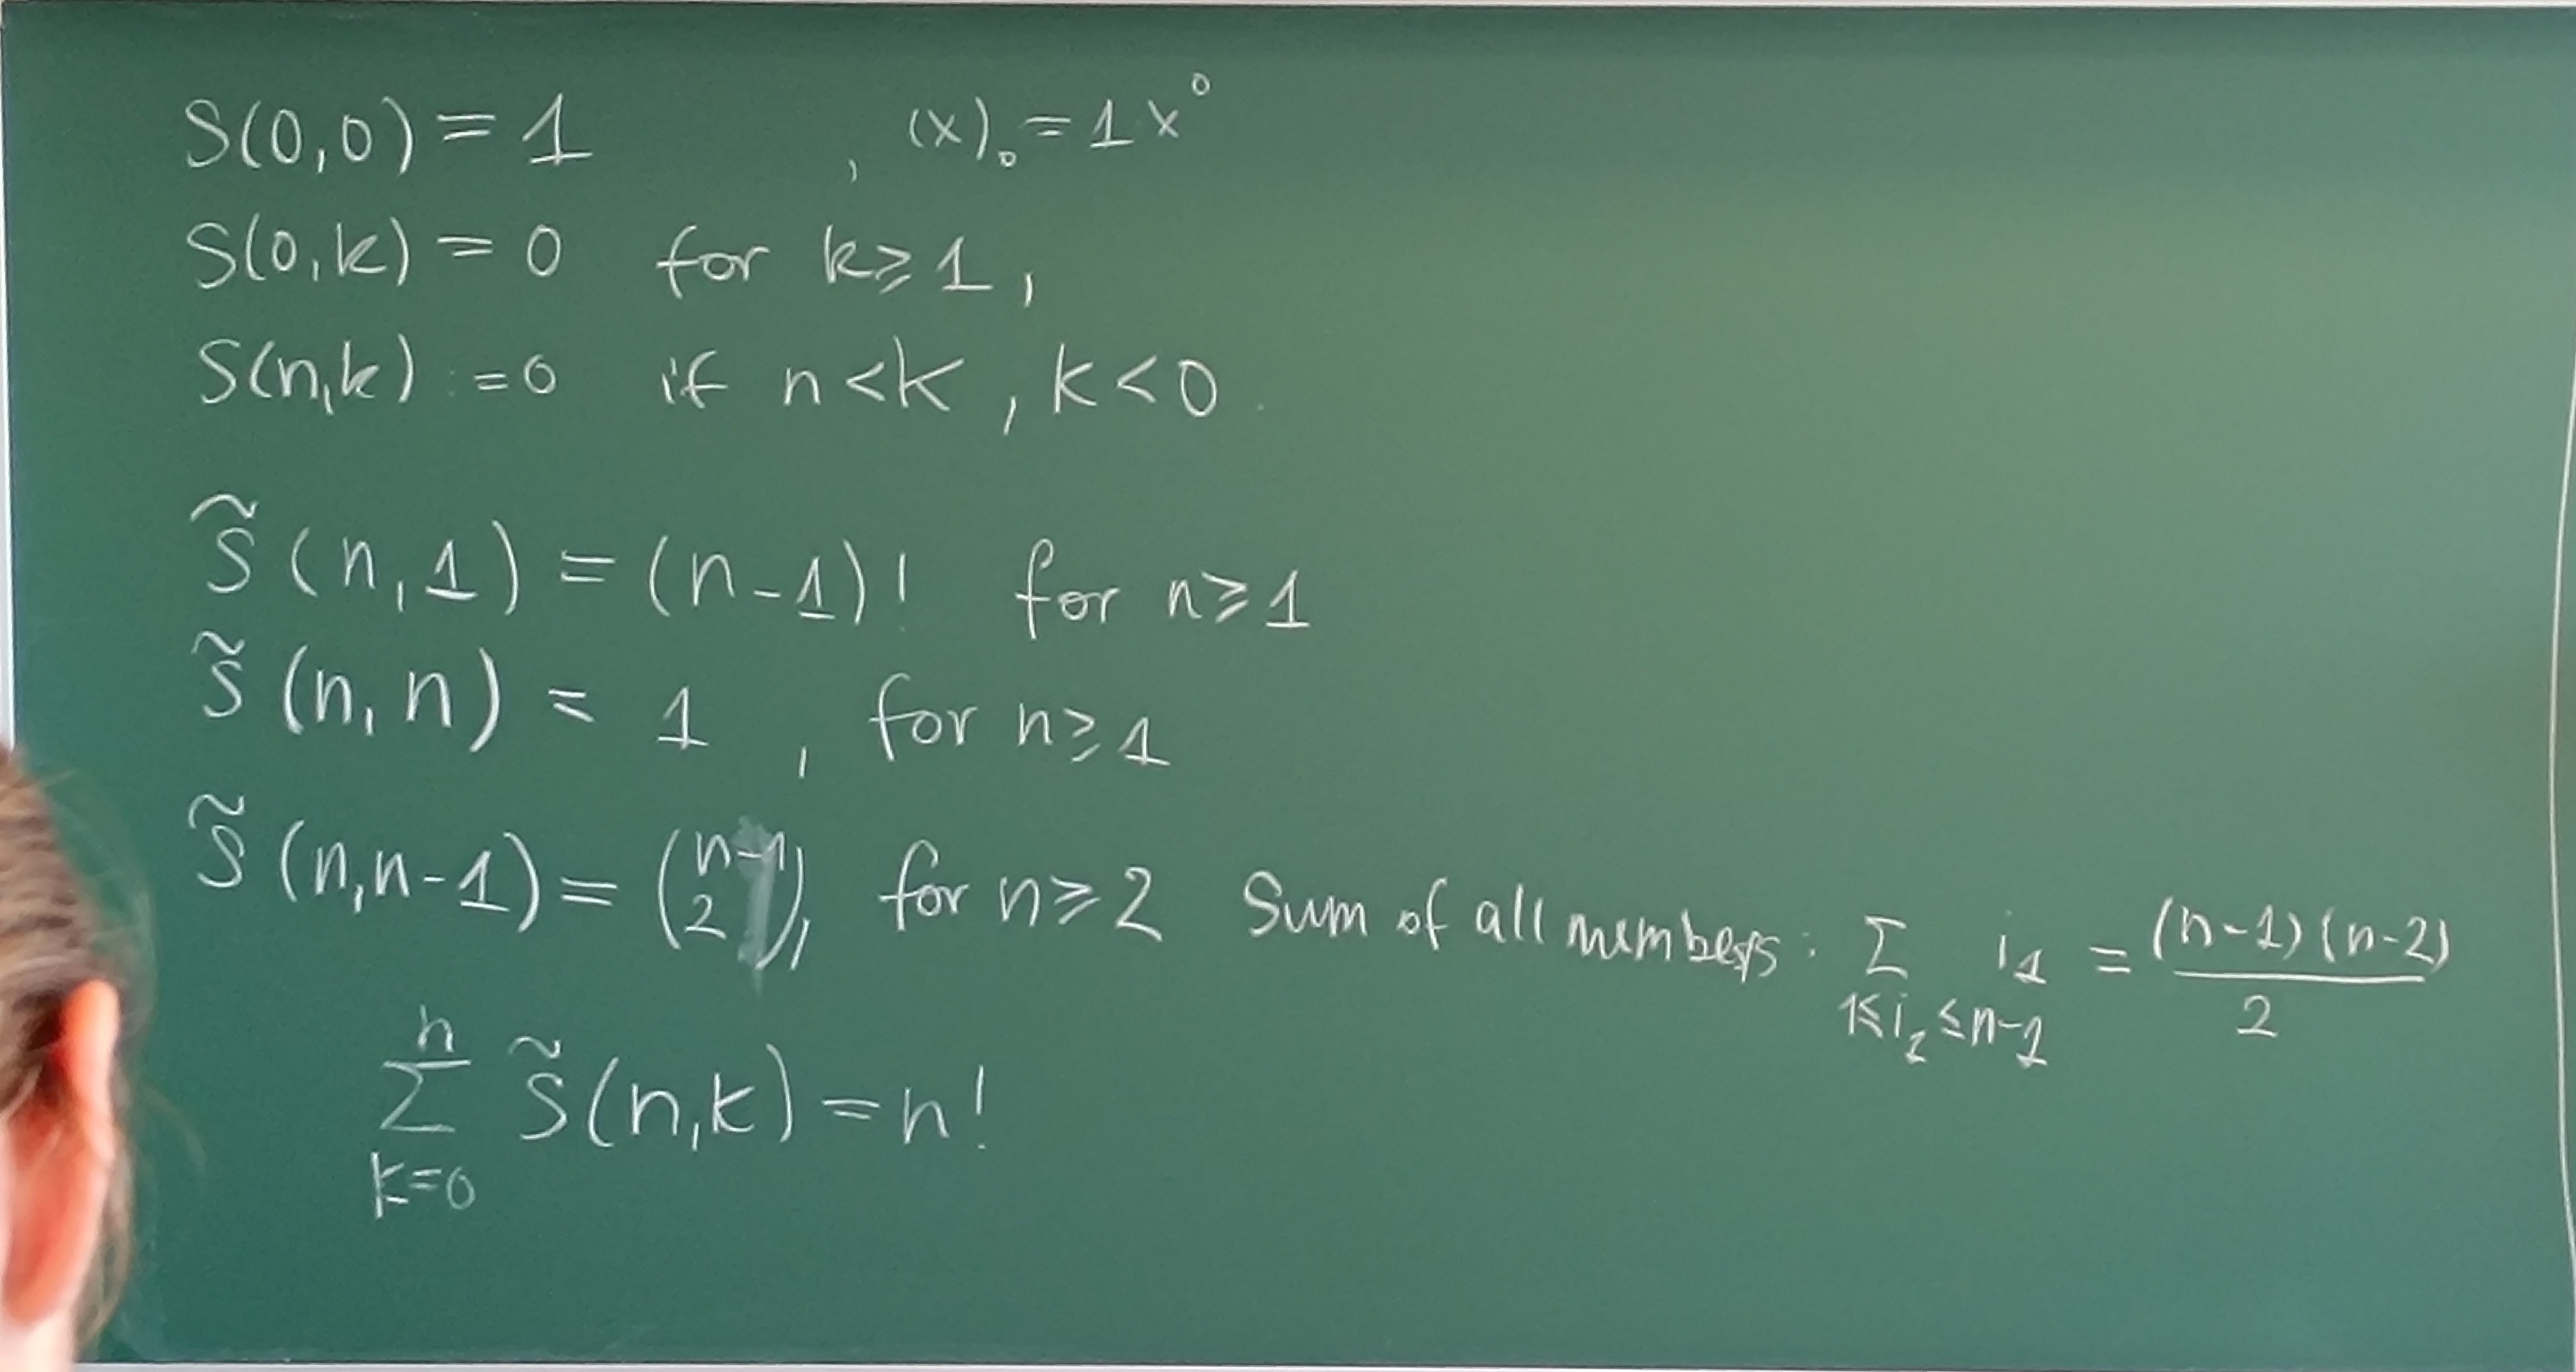 S(0,0) = 1 , (x)₀ = 1 x⁰
S(0,k) = 0 for k ≥ 1,
S(n,k) := 0 if n < k , k < 0.
s̃(n,1) = (n-1)! for n ≥ 1
s̃(n,n) = 1 , for n ≥ 1
s̃(n,n-1) = (n-1 2), for n ≥ 2 Sum of all members: Σ i₁ = (n-1)(n-2)/2
1 ≤ i₂ ≤ n-1
Σ_{k=0}^{n} s̃(n,k) = n!